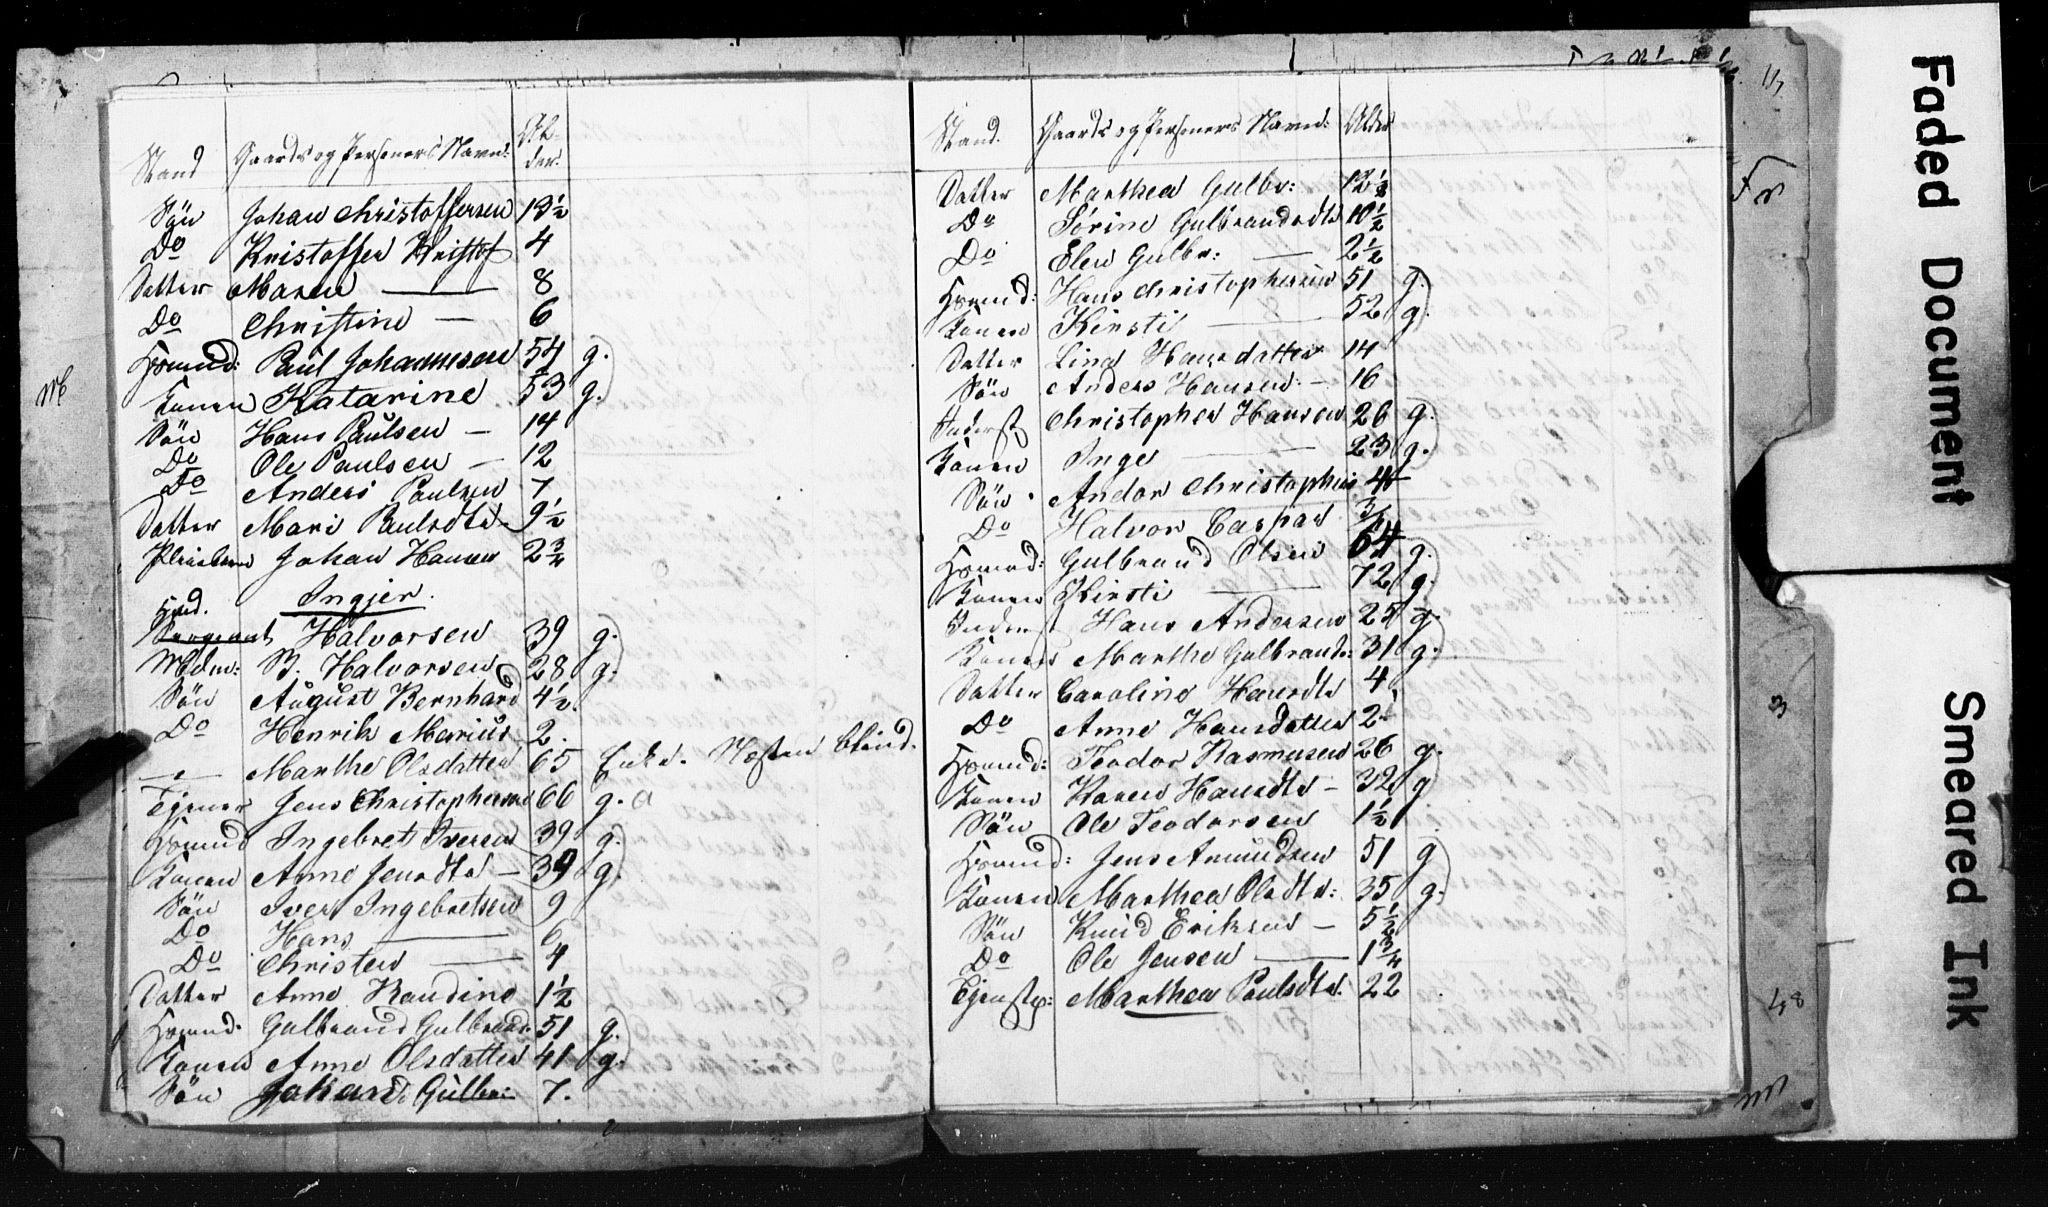 Stand Gaards og Personers Navne: Al-der.
Søn Johan Christoffersen 13 1/2
Do Kristoffer Kristof 4
Datter Maren — 8
Do Christine — 6
Hsmnd: Paul Johannesen 54 g.
Konen Katarine 53 g.
Søn Hans Paulsen — 14
Do Ole Paulsen — 12
Do Anders Paulsen 7
Datter Mari Paulsdtr 9 1/2
Pleiebarn Johan Hansen 2 3/4
Ingjer.
Sergeant Halvorsen 39 g.
Mdm: B. Halvorsen 28 g.
Søn August Bernhard 4 1/2
Do Henrik Marius 2.
— " — Marthe Olsdatter 65 Enke. Næsten blind.
Ejener Jens Christophersen 66 g. a
Hsmnd Ingebret Iversen 39 g.
Konen Anne Jensdtr — 39 g.
Søn Iver Ingebretsen 9
Do Hans — 6
Do Christen — 4
Datter Anne Randine 1 1/2
Hsmnd. Gulbrand Gulbrands 51 g.
Konen Anne Olsdatter 41 g.
Søn Johan Gulbr: 7.
Stand. Gaards og Personers Navne: Alder
Datter Marthea Gulbr: 12 1/2
Do Sørine Gulbrandsdtr 10 1/2
Do Elen Gulbr: — 2 1/2
Hsmnd: Hans Christophersen 51 g.
Konen Kirsti — 52 g.
Datter Lina Hansdatter 14
Søn Anders Hansen — 16
Inderst Christopher Hansen 26 g.
Konen Inge — 23 g.
Søn Andor Christophers 4
Do Halvor Caspar 3/4
Hsmnd: Gulbrand Olsen 64 g.
Konen Kirsti — 72 g.
Inderst Hans Andersen 25 g.
Konen Marthe Gulbrands: 31 g.
Datter Caroline Hansdtr 4
Do Anne Hansdatter 2
Hsmnd: Teodor Rasmusen 26 g.
Konen Karen Hansdtr — 32 g
Søn Ole Teodorsen 1 1/2
Hsmnd: Jens Amundsen 51 g
Konen Marthea Olsdtr: 35 g.
Søn Knud Eriksen — 5 1/2
Do Ole Jensen — 1 3/4
Marthea Paulsdtr. 22
3
48
Faded Document
Smeared Ink